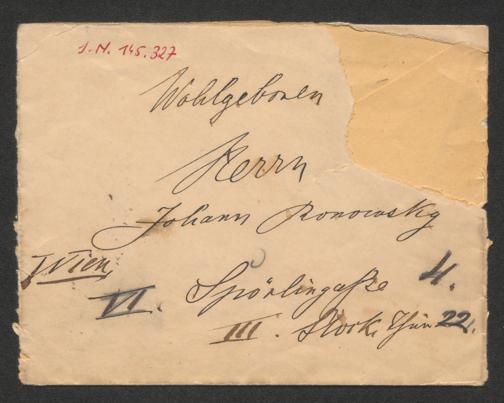 J.N. 145.327
Wohlgeboren
Herrn
Johann Ronowsky
Wien
VI. Spörlingasse 4.
III. Stock Thür 22.